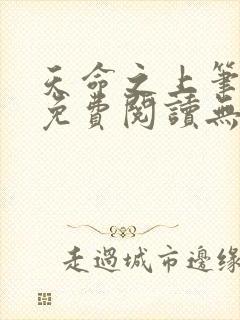 天命之上筆
免費閱讀無
走過城市邊緣